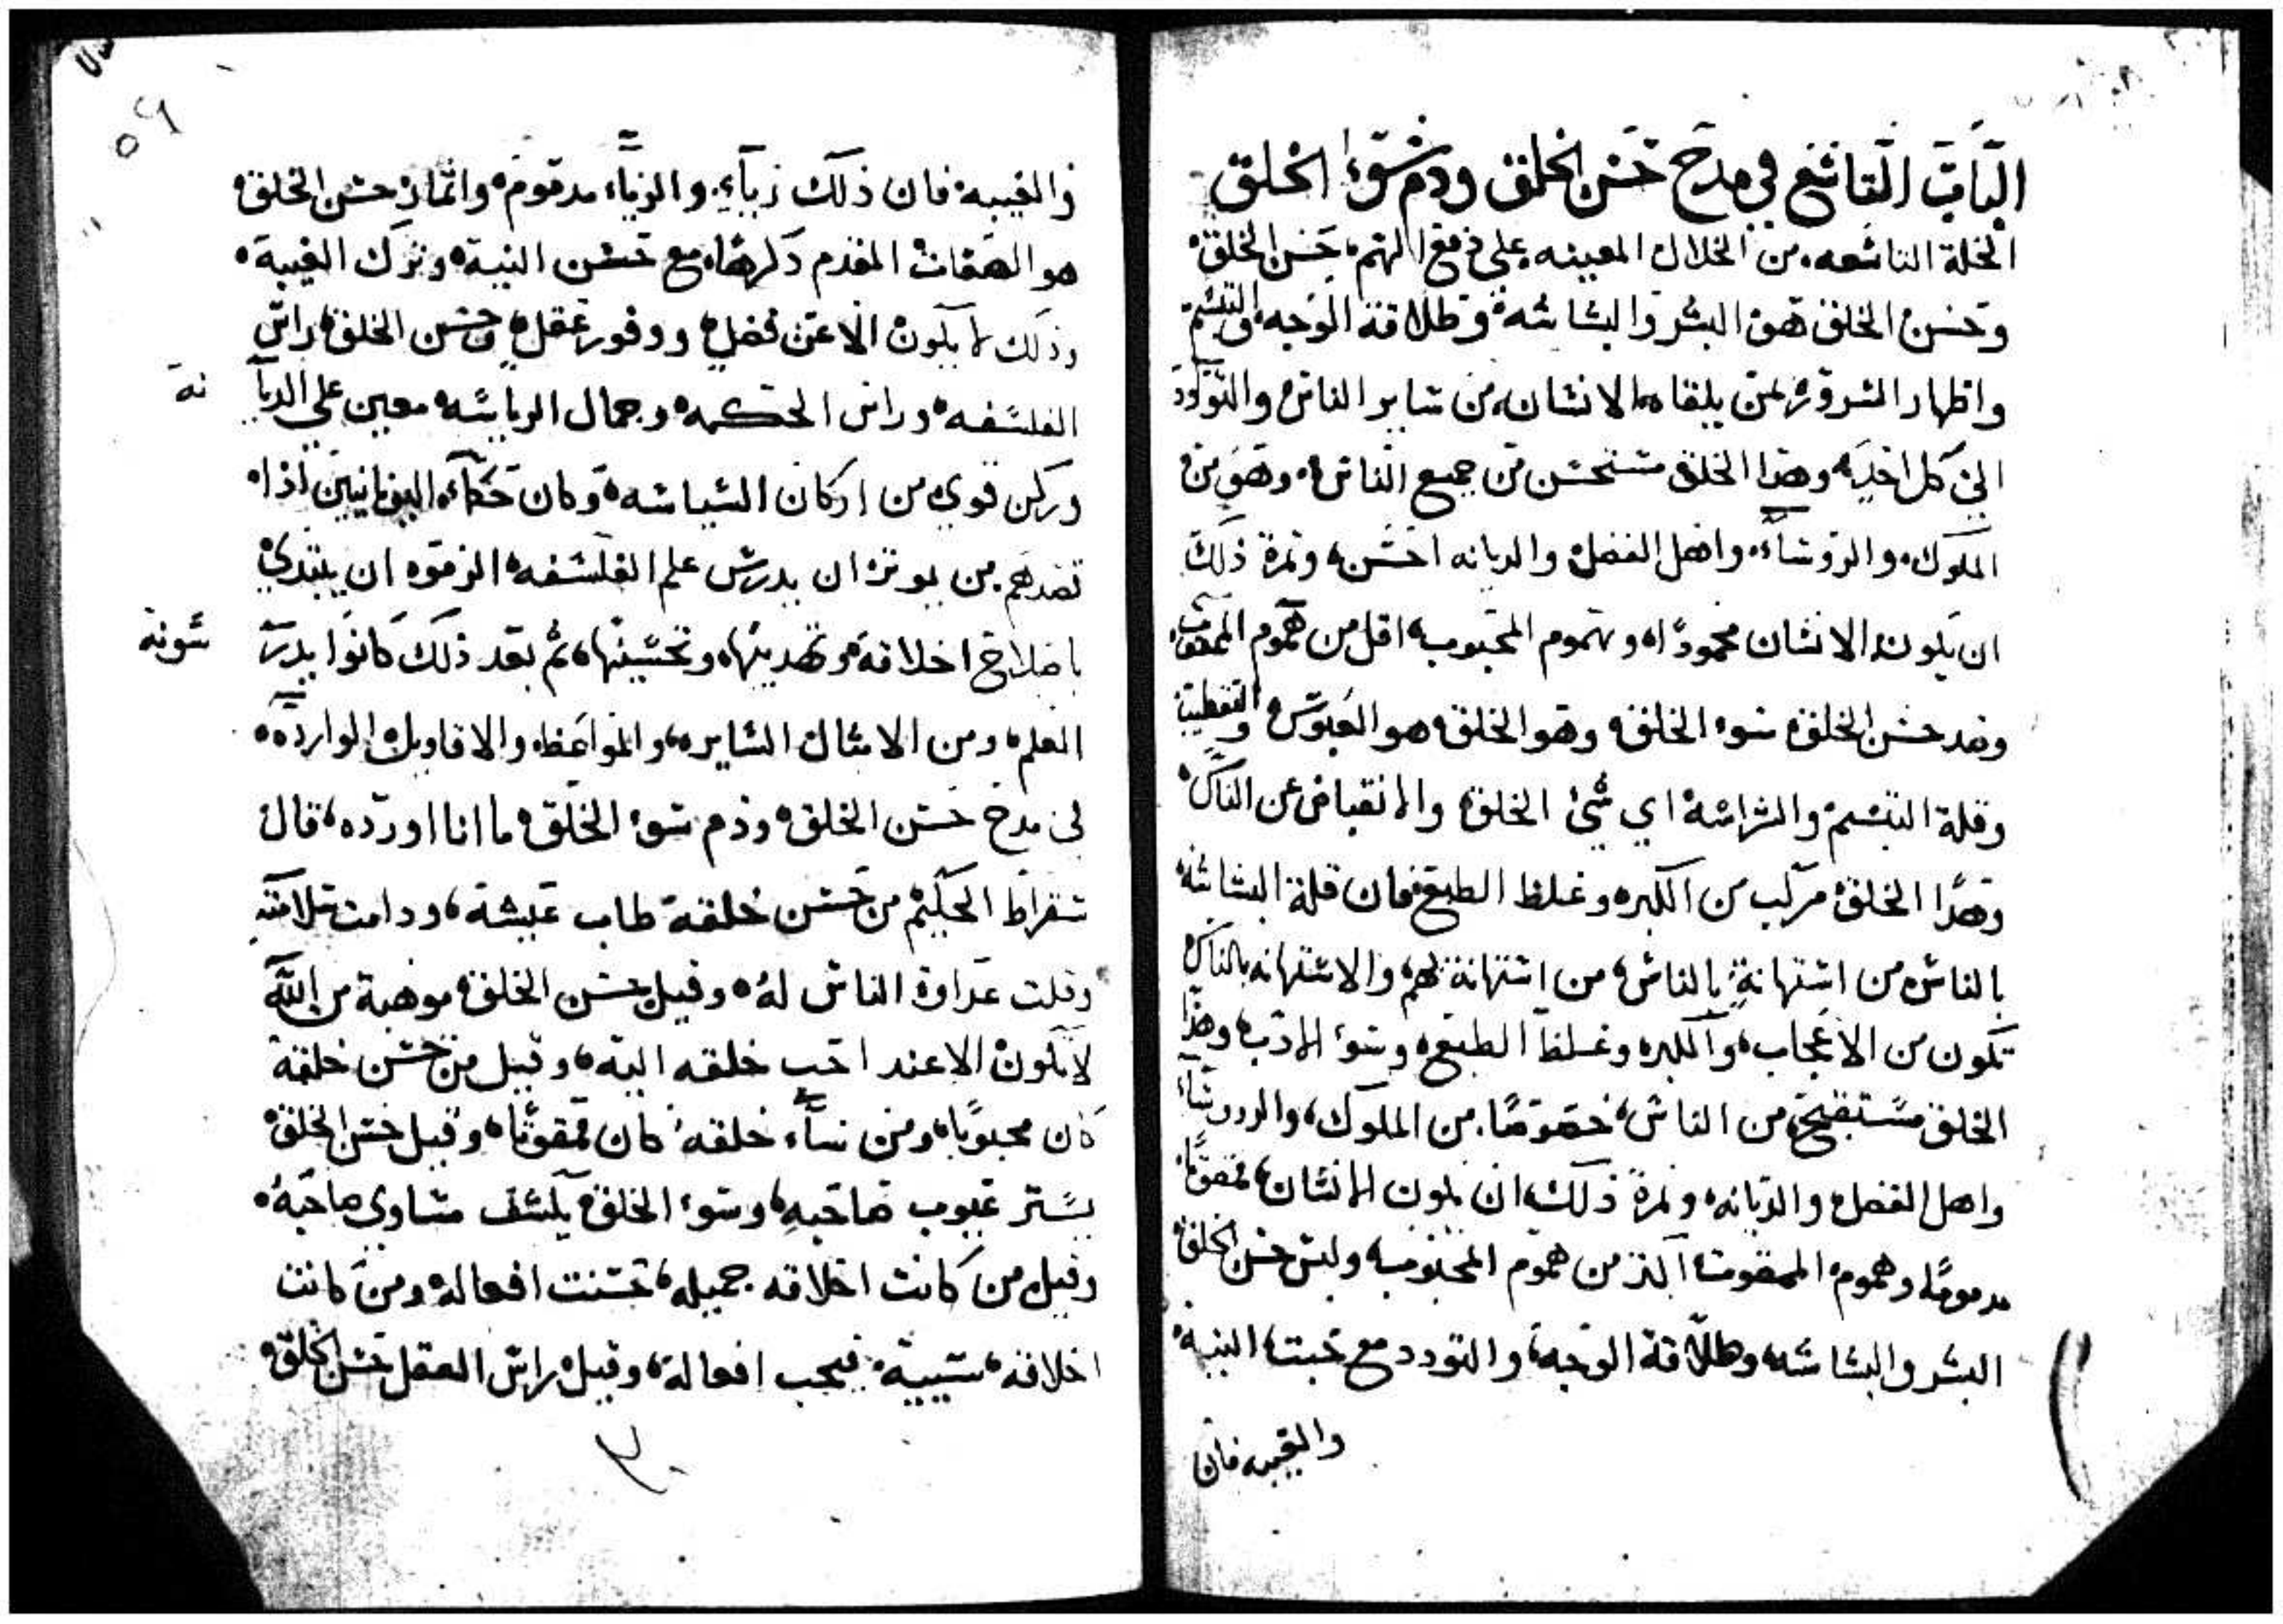 الباب التاسع في مدح حسن الخلق وذم سوء الخلق
الخلة التاسعه من الخلال المعينه علي دفع الهم، حسن الخلق
وحسن الخلق هو البشر والبشاشه وطلاقة الوجه والتبسم
واظهار السرور لمن يلقاه الانسان من ساير الناس والتودد
الي كل احد وهذا الخلق مستحسن من جميع الناس وهو من
الملوك والروساء واهل الفضل والديانه احسن، وثمرة ذلك
ان يكون الانسان محمودًا وهموم المحبوب، اقل من هموم الممقوت
وضد حسن الخلق سوء الخلق وهو الخلق هو العبوس والتقطيب
وقلة التبسم والشراسة اي شئ الخلق والانقباض عن الناس
وهذا الخلق مركب من الكبره وغلظ الطبع فان قلة البشاشه
بالناس من استهانةٍ بالناس، من استهانة لهم والاستهانه بالناس
تكون من الاعجاب، والكبره وغلظ الطبع وسوء الادب، وهذا
الخلق مستقبح من الناس، خصوصًا من الملوك، والروساء
واهل الفضل والديانه وثمرة ذلك، ان يكون الانسان، ممقوتًا
مدمومًا، وهموم الممقوت اكثر من هموم المحبوب، وليس حسن الخلق
البشر والبشاشه، وطلاقة الوجه، والتودد مع خبث النية
والغيبه فان
والغيبه فان ذلك رياء والرياء مدموم وانما حسن الخلق
هو الصفات المقدم دكرها، مع حسن النية وترك الغيبة
وذلك لا يكون الا عن فضل ووفور عقل، وحسن الخلق، راس
الفلسفه وراس الحكمه وجمال الرياسه، معين علي الديا
نة
وركن قوي من اركان السياسه وكان حكماء اليونانيين اذا
قصدهم من يوثر ان يدرس علم الفلسفه الزموه ان يبتدي
باصلاح اخلاقه وتهديبها، وتحسينها، ثم بعد ذلك كانوا يدر
سونة
العلم ومن الامثال السايره، والمواعظ والاقاويل الوارده
في مدح حسن الخلق وذم سوء الخلق ما انا اورده، قال
سقراط الحكيم من حسن خلقة طاب عيشة، ودامت سلامته
وقلت عداوة الناس له وقيل حسن الخلق، موهبة من الله
لا تكون الا عند احب خلقه اليه، وقيل من حسن خلقة
كان محبوبًا، ومن ساء خلقه كان ممقوتًا، وقيل حسن الخلق
يستر عيوب صاحبه، وسوء الخلق يكشف مساوي صاحبه
وقيل من كانت اخلاقه جميله، حسنت افعاله ومن كانت
اخلاقه، سييية فيجب افعالة، وقيل راس العقل حسن الخلق